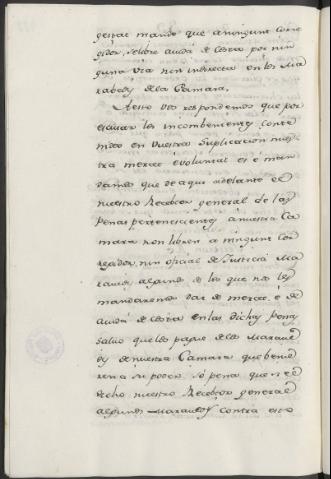 gestat mando que a ningunt corre
gidor, se libre aiuda de costa por nin
guna via nin indirecta en los Ma
ravedis de la Camara.
A esto vos respondemos que por
escusar los incombenientes conte
nidos en vuestra suplicacion nues
tra merced é voluntat es é man
damos que de aqui adelante el
nuestro Recebtor general de las
Penas pertenescientes a nuestra Ca
mara non libren a ningunt cor
regidor, nin oficial de Justicia Ma
ravedis algunos de los que nos les
mandaremos dar de merced, é de
aiuda de costa en las dichas penas
salvo que les pague de los Marave
dis de nuestra Camara que benie
ren a su poder, só pena que si el
decho nuestro Recebtor general
algunos Maravedis contra esto